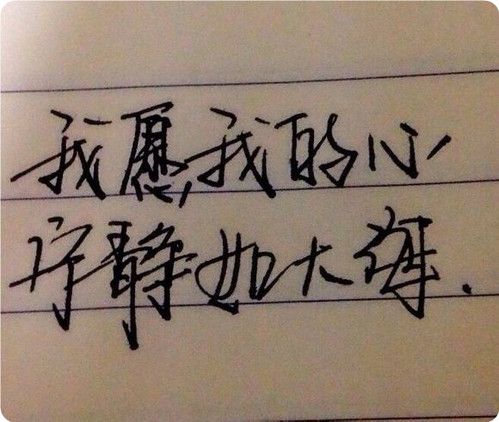 我愿我的心
宁静如大海.